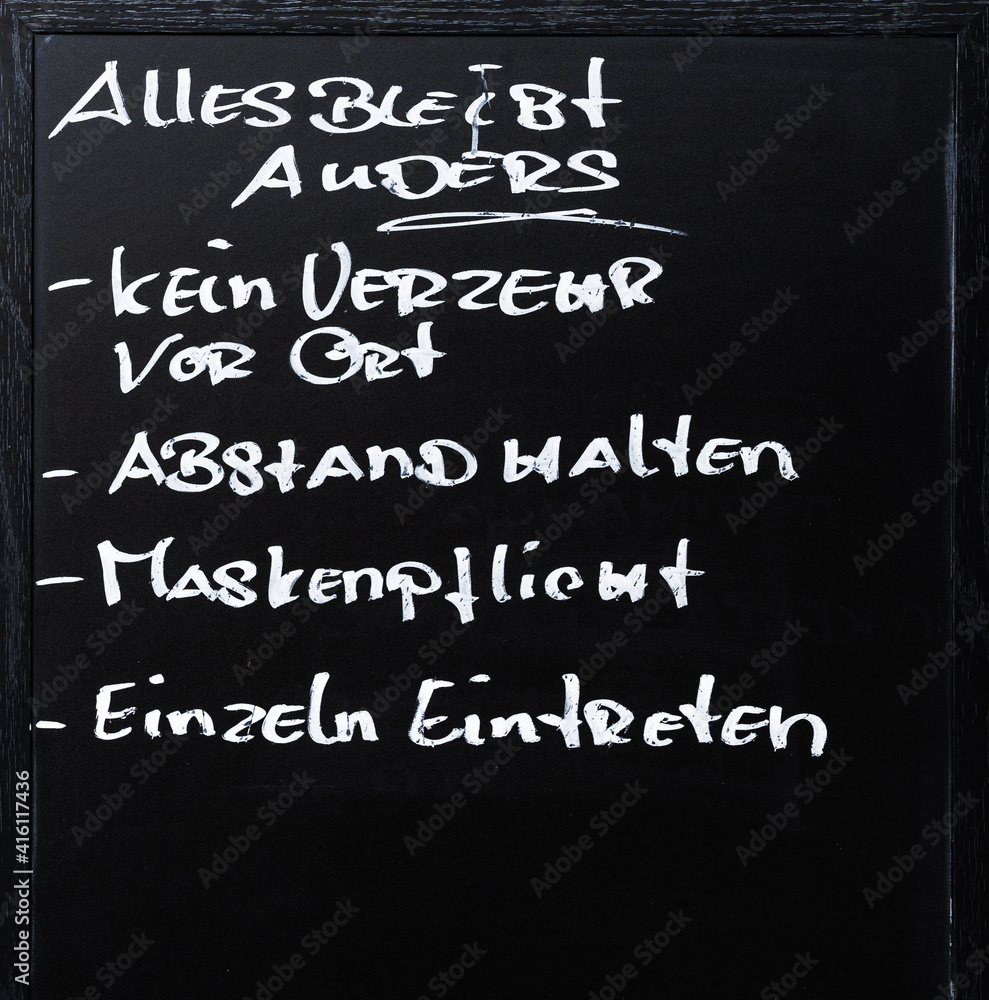 Alles Bleibt
Anders
- kein Verzehr
Vor Ort
- Abstand halten
- Maskenpflicht
- Einzeln Eintreten
Adobe Stock | #416117436